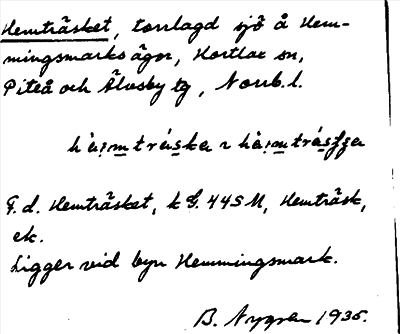 Hemträsket, torrlagd sjö å Hem-
mingsmarks ägor, Hortlax sn,
Piteå och Älvsby tg, Norrb. l.
F. d. Hemträsket, k G. 44 S M, Hemträsk,
ek.
Ligger vid byn Hemmingsmark.
B. Nygren 1935.